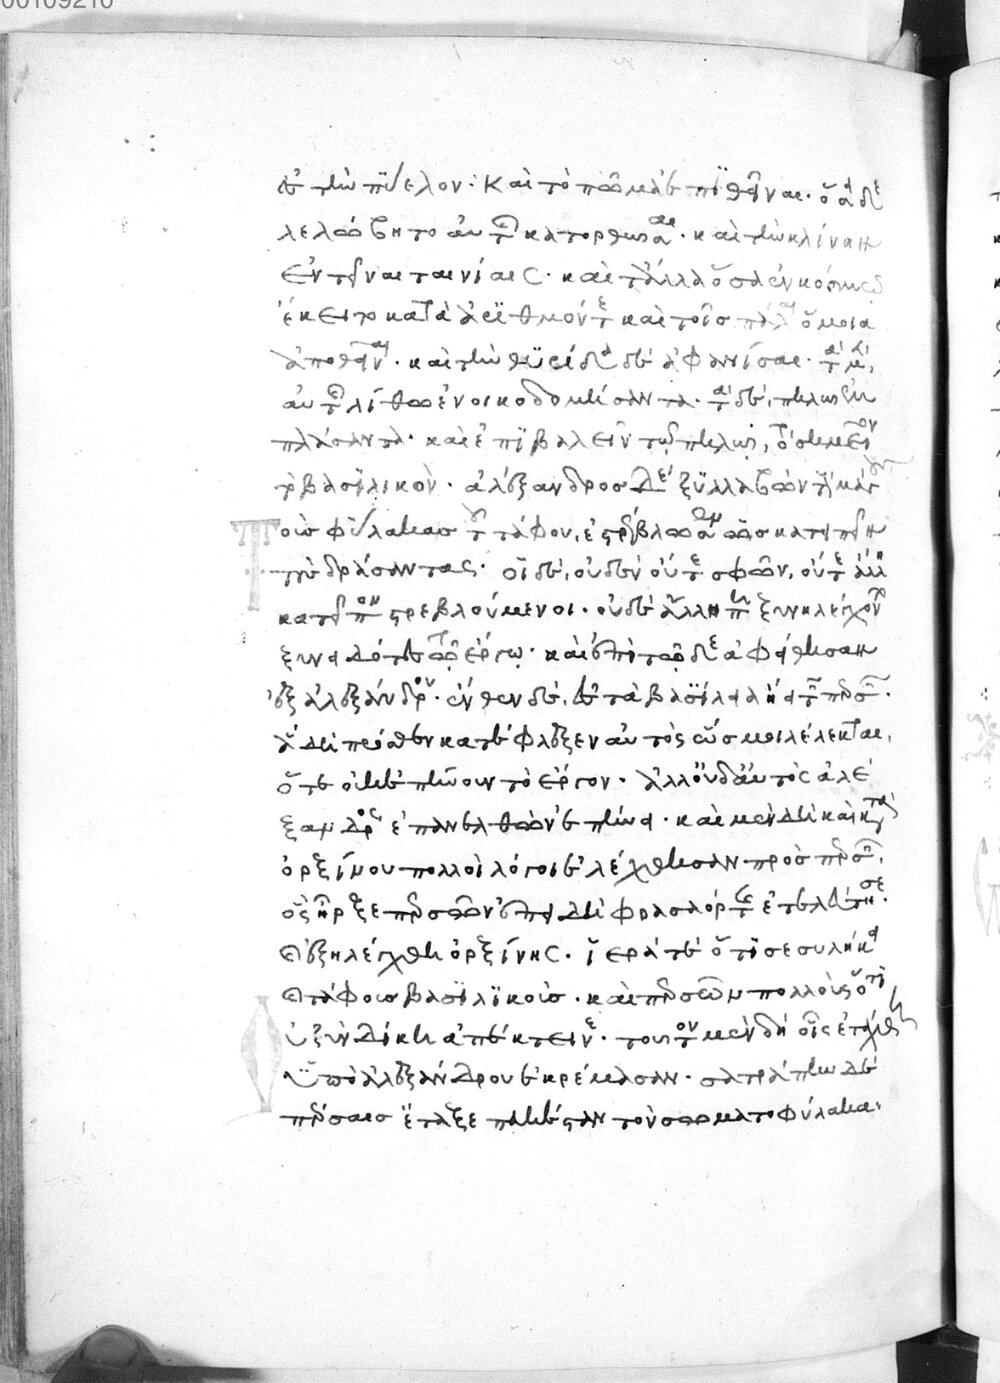 ἐς τὴν πύελον· καὶ τὸ πῶμα ἐπιθεῖναι· ὅσα δὲ
λελώβητο αὐτοῦ κατορθῶσαι· καὶ τὴν κλίνην
ἐντεῖναι ταινίαις· καὶ τἄλλα ὅσα ἐν κόσμω
ἔκειτο κατὰ ἀριθμόν τε καὶ τοῖς πάλαι ὅμοια
ἀποθεῖναι· καὶ τὴν θυρίδα δὲ ἀφανίσαι· τὰ μὲν
αὐτῆς λίθω ἐνοικοδομήσαντα· τὰ δὲ, πηλῶ ἐν
πλάσαντα· καὶ ἐπιβαλεῖν τῶ πηλῶ, τὸ σημεῖον
τὸ βασιλικὸν· ἀλέξανδρος δὲ ξυλλαβὼν τοὺς μάγους
τοὺς φύλακας τοῦ τάφου, ἐστρέβλωσεν ὡς κατειπεῖν
τοὺς δράσαντας· οἱ δὲ, οὐδὲν οὔτε σφῶν, οὔτε ἄλλου
κατεῖπον στρεβλούμενοι· οὐδὲ ἄλλη πη ξυνηλέγχοντο
ξυνειδότες τῶ ἔργω· καὶ ἐπὶ τῶδε ἀφείθησαν
ἐξ ἀλεξάνδρου· ἔνθεν δὲ, ἐς τὰ βασίλεια ἤει τὰ περσῶν·
ἃ δὴ πρόσθεν κατέφλεξεν αὐτὸς ὥς μοι λέλεκται,
ὅτε οὐκ ἐπήνουν τὸ ἔργον· ἀλλ' οὐδ' αὐτὸς ἀλέ
ξανδρος ἐπανελθὼν ἐπήνει· καὶ μὲν δὴ καὶ κατὰ
ὀρξίνου πολλοὶ λόγοι ἐλέχθησαν πρὸς περσῶν,
ὃς ἦρξε περσῶν ἐπειδὴ φρασαόρτης ἐτελεύτησε·
καὶ ἐξηλέγχθη ὀρξίνης· ἱερά τε ὅτι σεσυλήκει
καὶ τάφους βασιλικούς· καὶ περσῶν πολλοὺς ὅτι
οὐ ξὺν δίκη ἀπέκτεινε· τοῦτον μὲν δὴ οἷς ἐτάχθη
ὑπὸ ἀλεξάνδρου ἐκρέμασαν· σατράπην δὲ
πέρσαις ἔταξε πευκέσταν τὸν σωματοφύλακα·